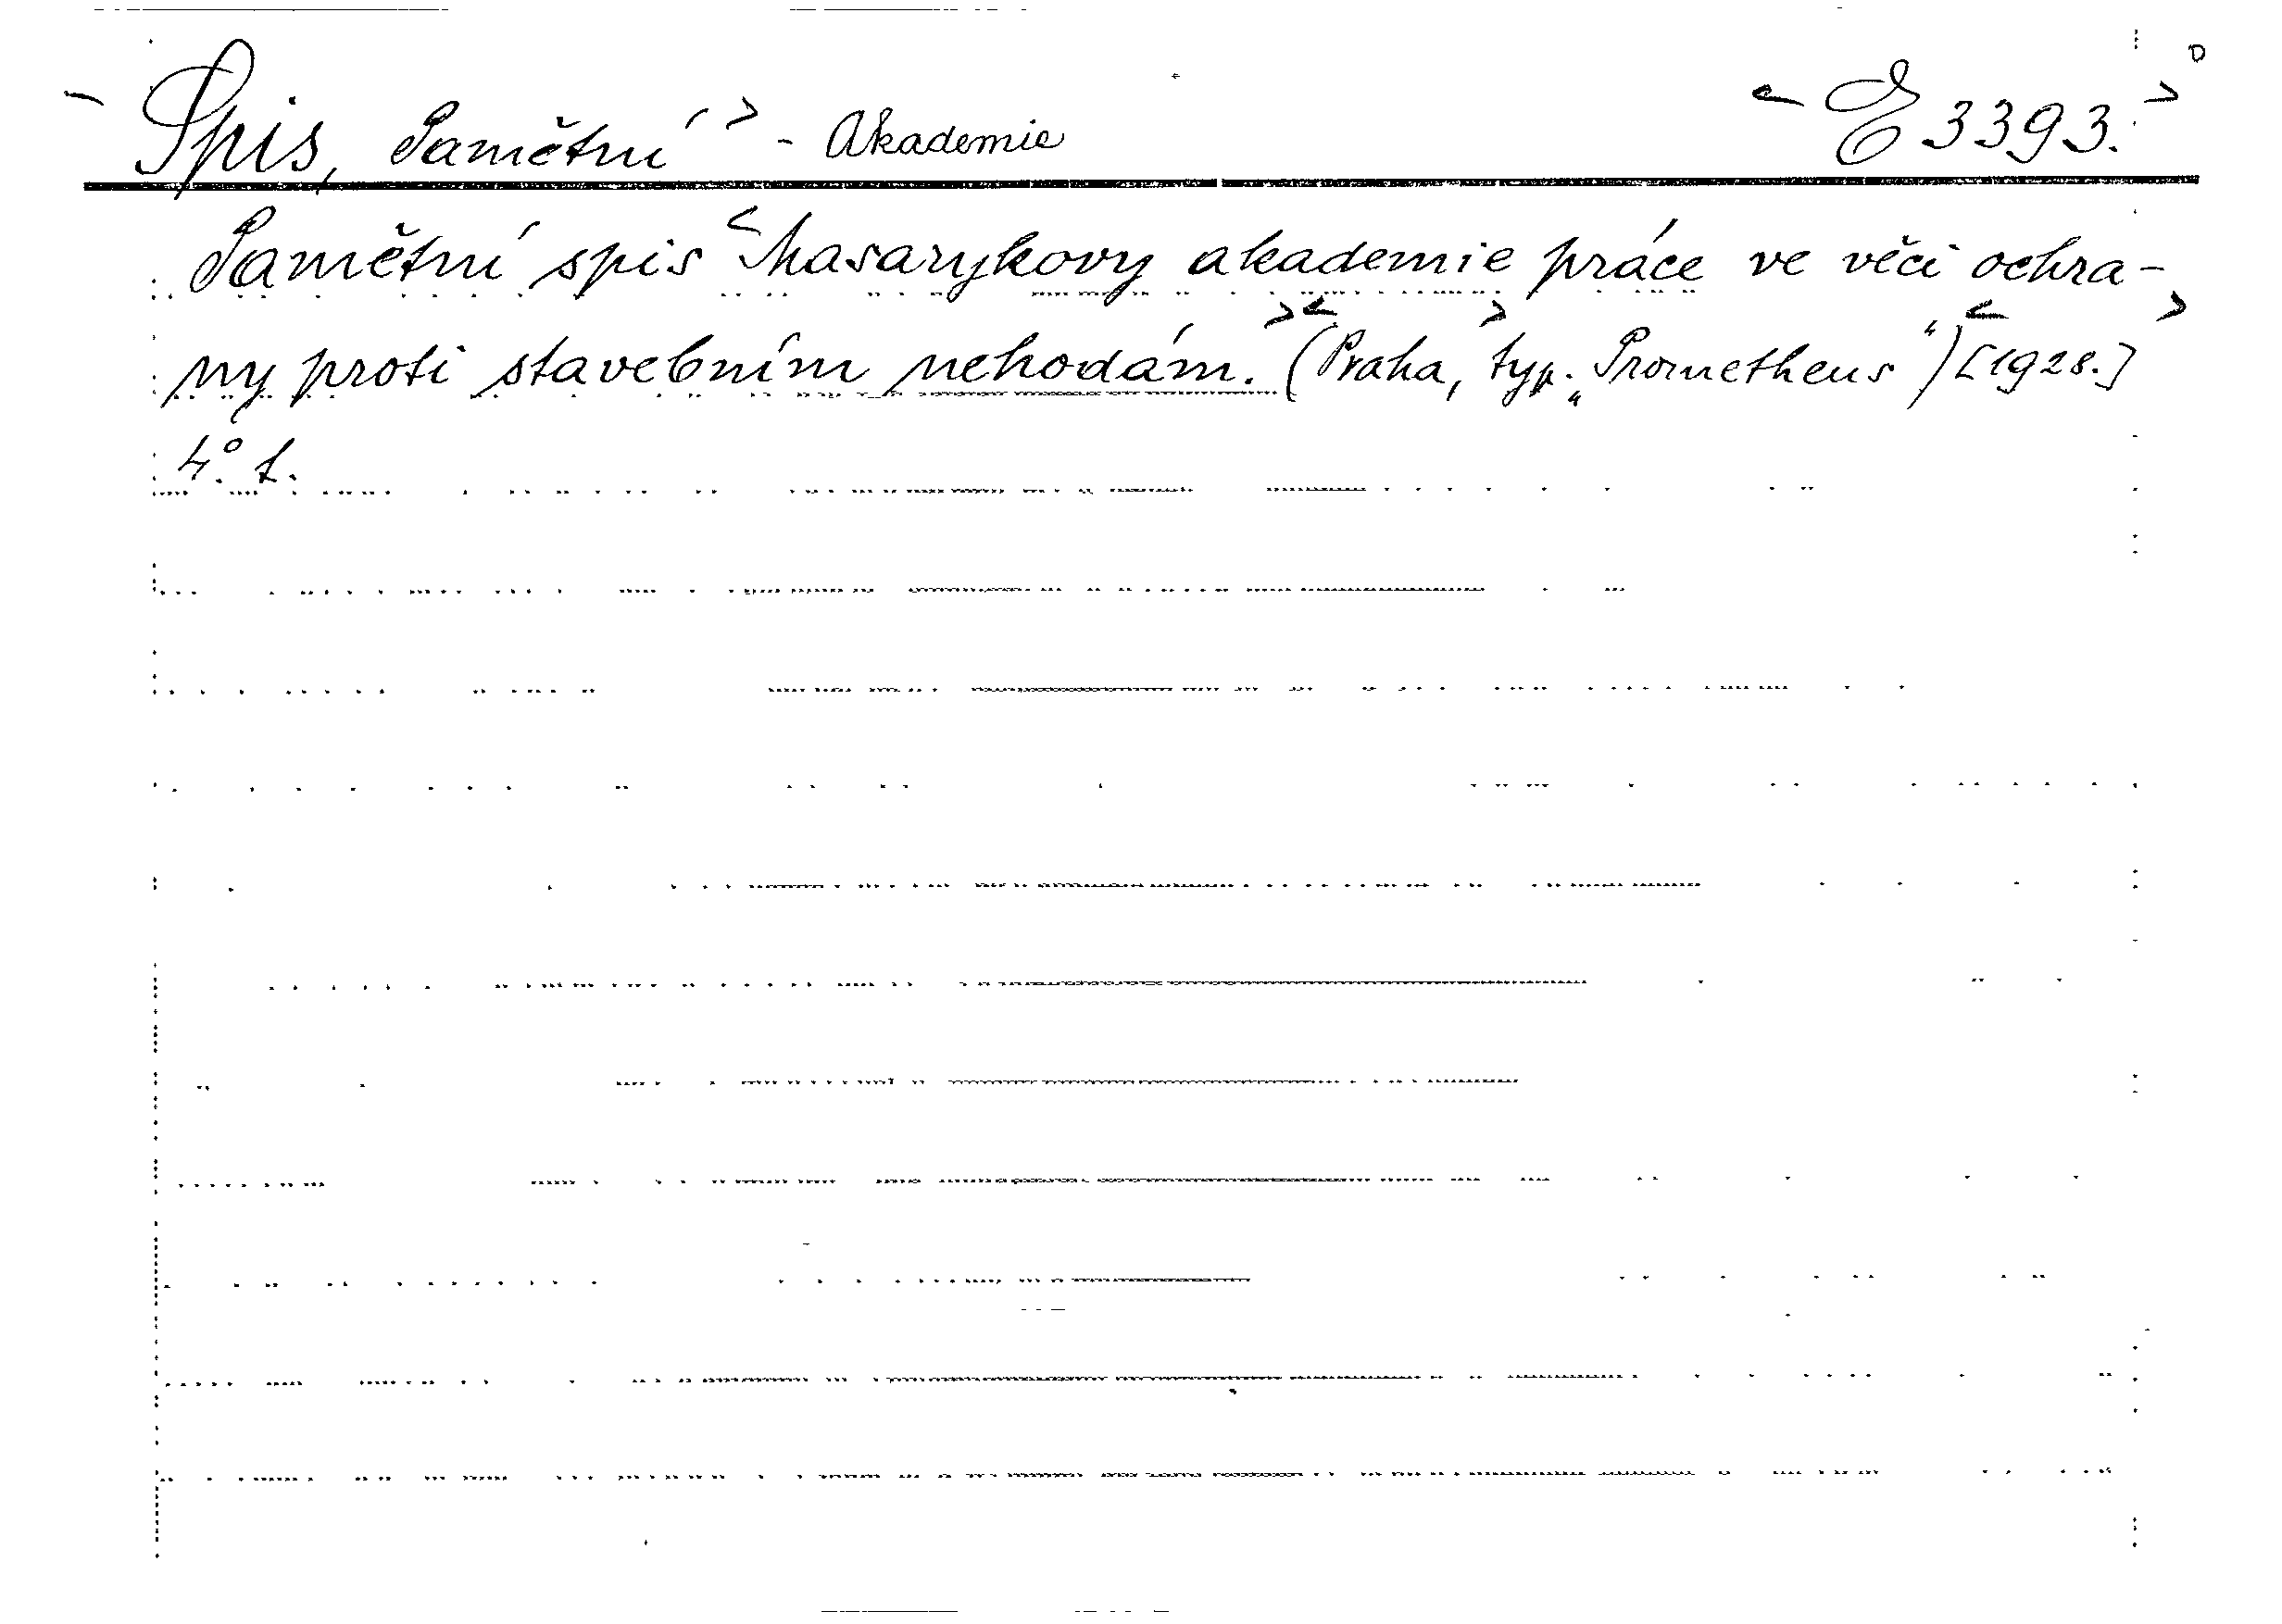 Spis, Pamětní - Akademie E 3393.
Pamětní spis Masarykovy akademie práce ve věci ochra-
ny proti stavebním nehodám. (Praha, typ. „Prometheus“) [1928.]
4°. f.